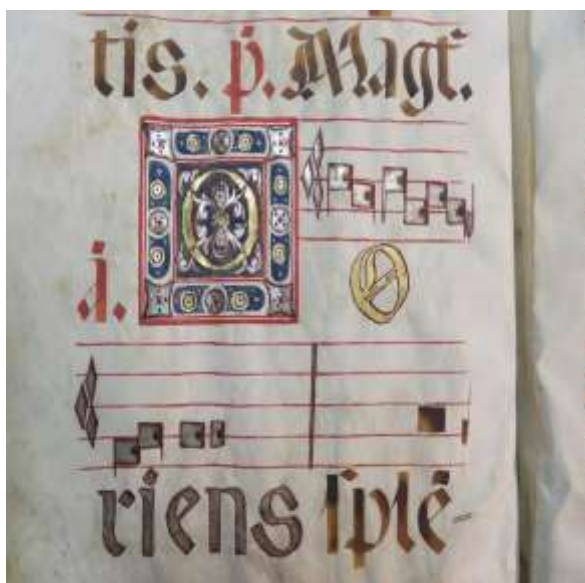 tis. p̄. Magt̄.
O O
i.
riens splē-